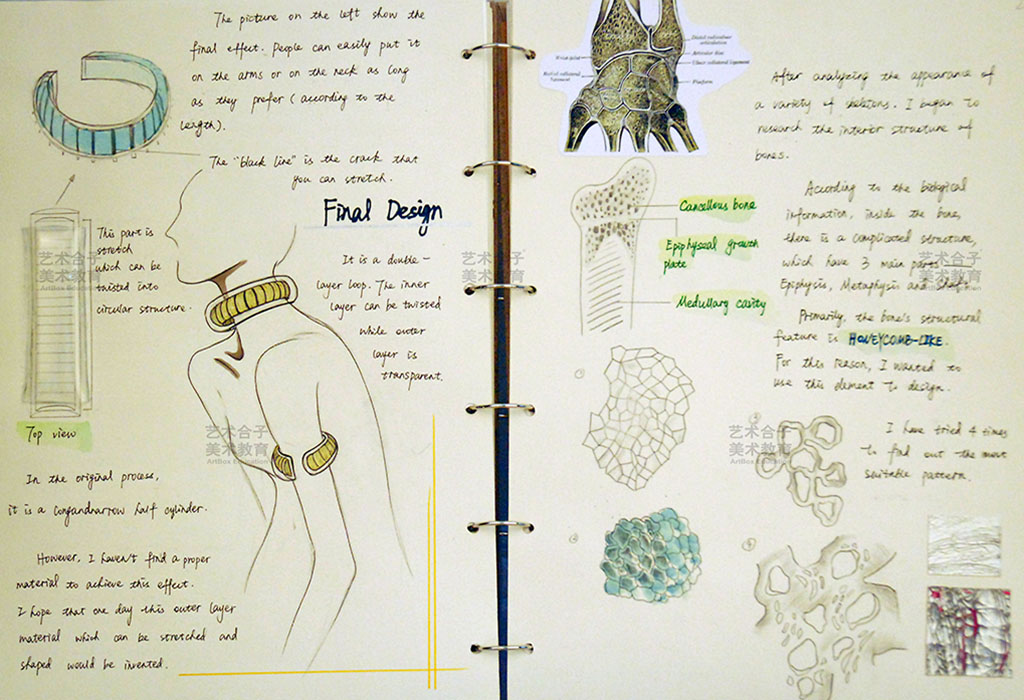 The picture on the left show the
final effect. People can easily put it
on the arms or on the neck as long
as they prefer (according to the
length).
The "black line" is the crack that
you can stretch.
Final Design
This part is
stretch
which can be
twisted into
circular structure.
It is a double-
layer loop. The inner
layer can be twisted
while outer
layer is
transparent.
Top view
In the original process,
it is a longandnarrow half cylinder.
However, I haven't find a proper
material to achieve this effect.
I hope that one day this outer layer
material which can be stretched and
shaped would be invented.
艺术合子
美术教育
ArtBox Education
艺术合子
美术教育
ArtBox Education
Distal radioulnar
articulation
Articular disc
Ulnar collateral ligament
Pisiform
Wrist joint
Radial collateral
ligament
After analyzing the appearance of
a variety of skeletons. I began to
research the interior structure of
bones.
Cancellous bone
Epiphyseal growth
plate
Medullary cavity
According to the biological
information, inside the bone,
there is a complicated structure,
which have 3 main parts
Epiphysis, Metaphysis and Shaft.
Primarily, the bone's structural
feature is HONEYCOMB-LIKE.
For this reason, I wanted to
use this element to design.
艺术合子
美术教育
ArtBox Education
艺术合子
美术教育
ArtBox Education
艺术合子
美术教育
ArtBox Education
①
②
③
④
I have tried 4 times
to find out the most
suitable pattern.